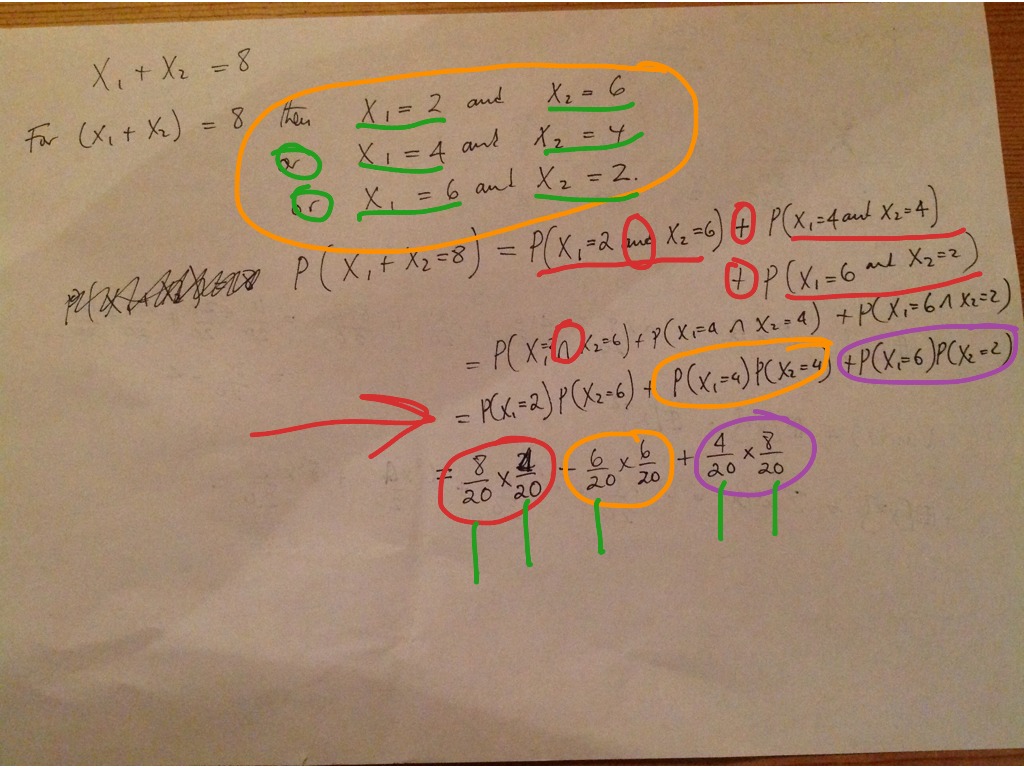 X₁ + X₂ = 8
For (X₁ + X₂) = 8 then X₁ = 2 and X₂ = 6
or X₁ = 4 and X₂ = 4
or X₁ = 6 and X₂ = 2.
P(X₁ + X₂ = 8) = P(X₁=2 and X₂=6) + P(X₁=4 and X₂=4)
+ P(X₁=6 and X₂=2)
= P(X₁=2 ∩ X₂=6) + P(X₁=4 ∩ X₂=4) + P(X₁=6 ∩ X₂=2)
= P(X₁=2) P(X₂=6) + P(X₁=4) P(X₂=4) + P(X₁=6) P(X₂=2)
= 8/20 × 4/20 + 6/20 × 6/20 + 4/20 × 8/20